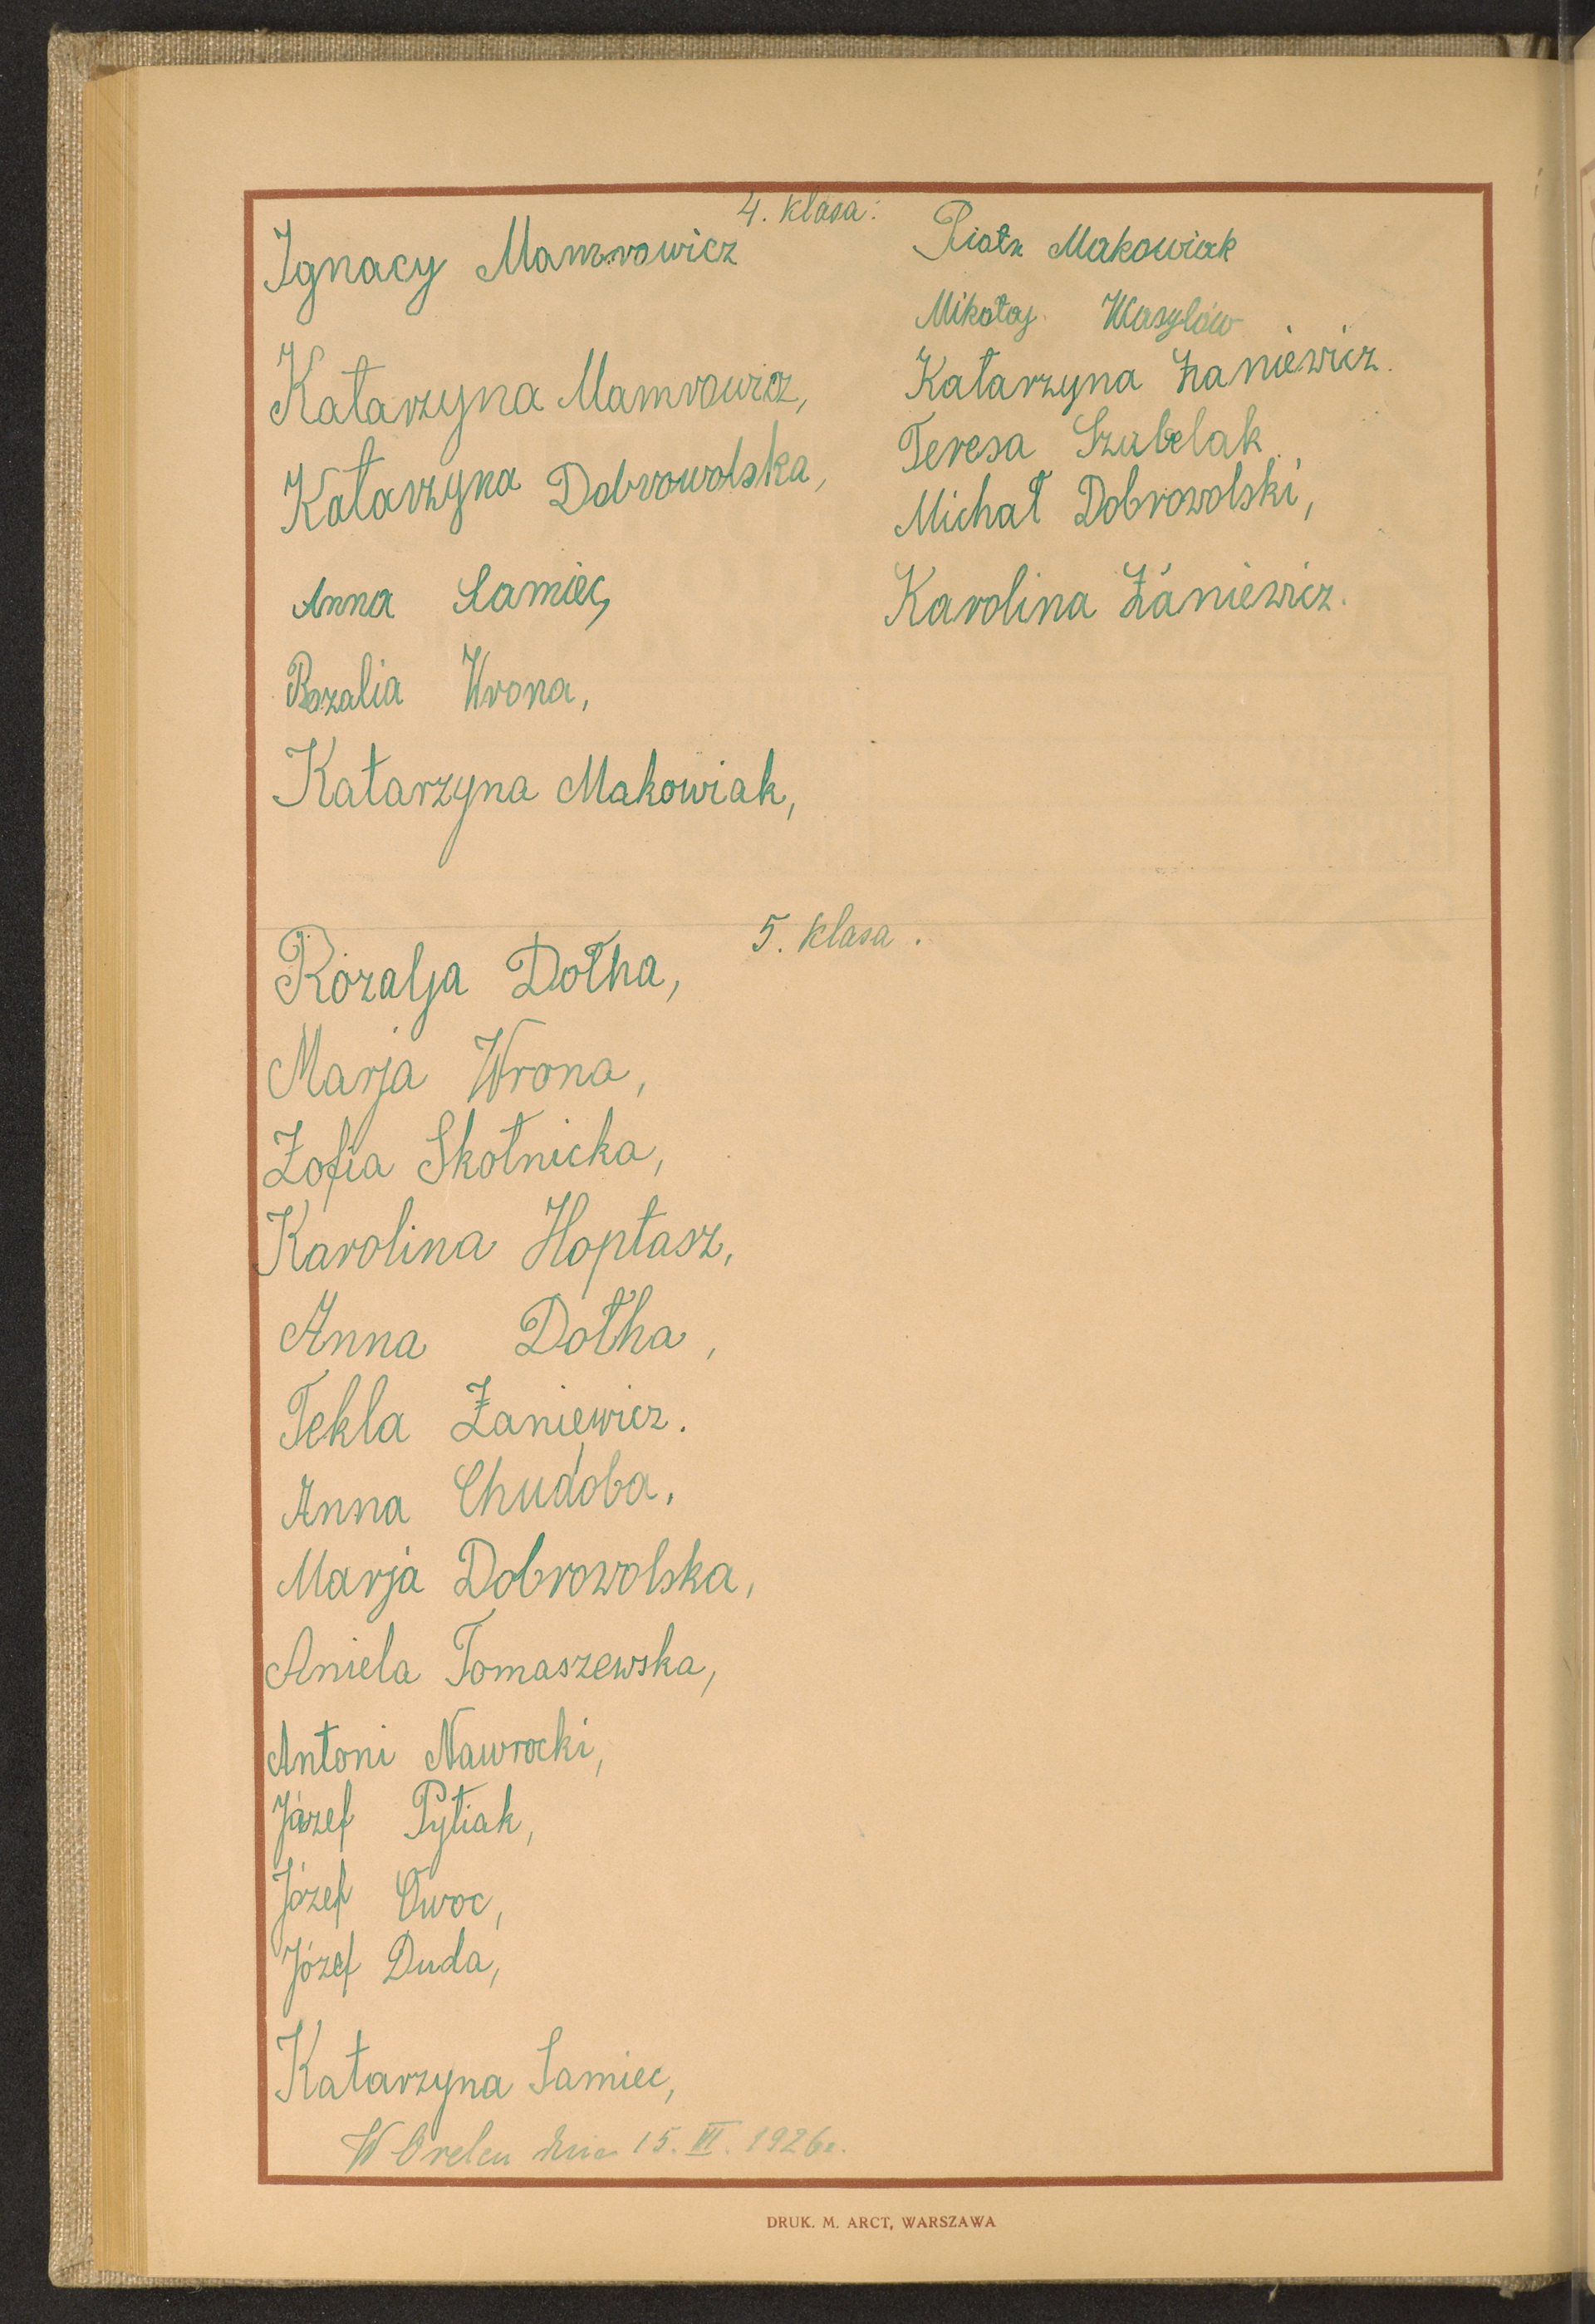 4. klasa:
Ignacy Mamrowicz
Katarzyna Mamrowicz,
Katarzyna Dobrowolska,
Anna Samiec,
Rozalia Wrona,
Katarzyna Makowiak,
Piotr Makowiak
Mikołaj Wasylów
Katarzyna Żaniewicz.
Teresa Szubelak
Michał Dobrowolski,
Karolina Żaniewicz.
5. klasa.
Rozalja Dołha,
Marja Wrona,
Zofia Skotnicka,
Karolina Hoptasz,
Anna Dołha,
Tekla Żaniewicz.
Anna Chudoba,
Marja Dobrowolska,
Aniela Tomaszewska,
Antoni Nawrocki,
Józef Pytiak,
Józef Owoc,
Józef Duda,
Katarzyna Samiec,
W Orelcu dnia 15. VI. 1926r.
DRUK. M. ARCT, WARSZAWA